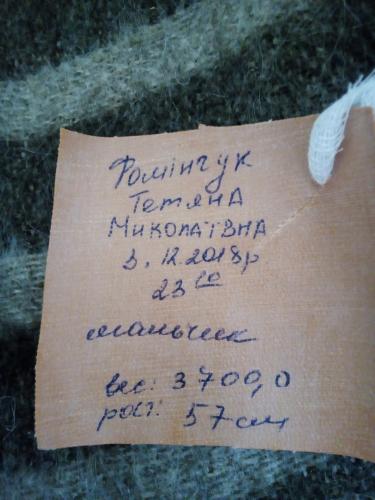 Фомінчук
Тетяна
Миколаївна
3.12.2018р
23⁶⁰
мальчик
вес: 3700,0
рост: 57см